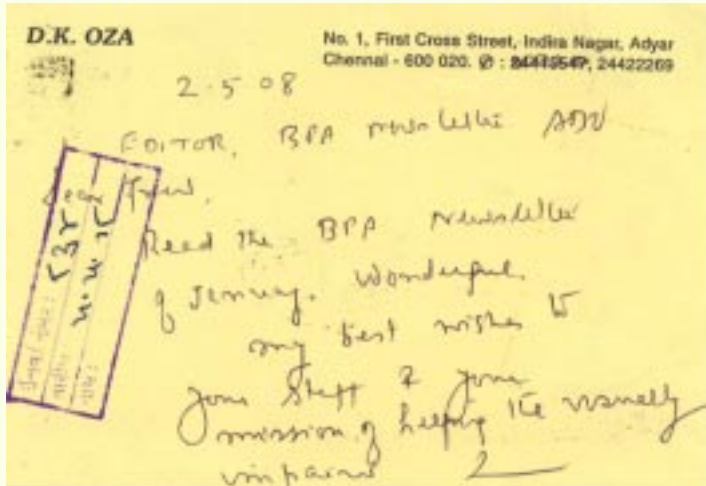 D.K. OZA
No. 1, First Cross Street, Indira Nagar, Adyar
Chennai - 600 020. ✆ : 24419547, 24422269
2.5 08
EDITOR, BPA Newsletter
Friend,
Read the BPA Newsletter
of January. Wonderful.
my best wishes to
your Staff & your
mission of helping the visually
impaired